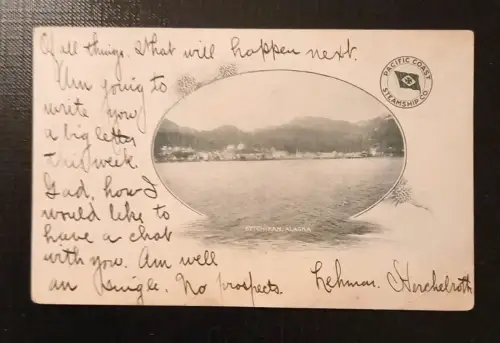 Of all things. What will happen next.
Am going to
write you
a big letter
this week.
Gad, how I
would like to
have a chat
with you. Am well
an single. No prospects. Lehman. Herchelroth
PACIFIC COAST
STEAMSHIP CO.
KETCHIKAN, ALASKA